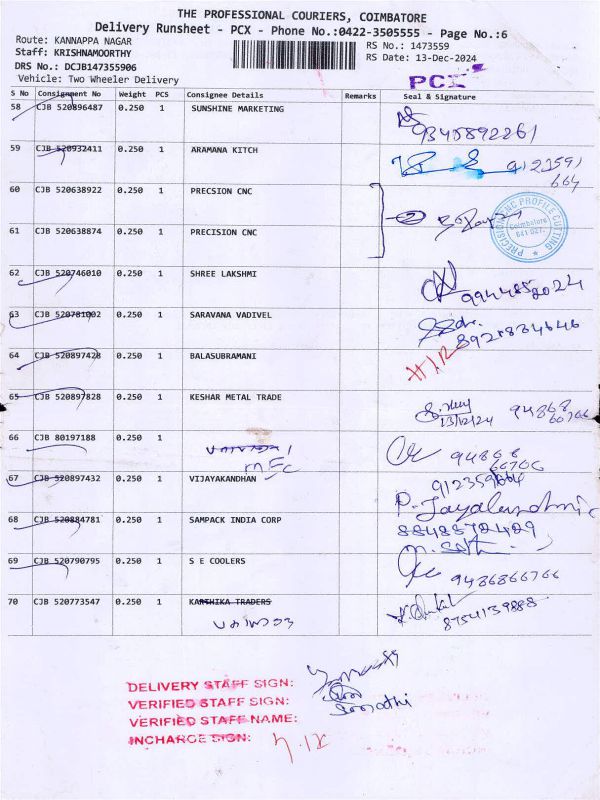 THE PROFESSIONAL COURIERS, COIMBATORE
Delivery Runsheet - PCX - Phone No.:0422-3505555 - Page No.:6
Route: KANNAPPA NAGAR
RS No.: 1473559
Staff: KRISHNAMOORTHY
RS Date: 13-Dec-2024
DRS No.: DCJB147355906
Vehicle: Two Wheeler Delivery
PCX
S No Consignment No Weight PCS Consignee Details Remarks Seal & Signature
58 CJB 520896487 0.250 1 SUNSHINE MARKETING
9345892261
59 CJB 520932411 0.250 1 ARAMANA KITCH
9123591
664
60 CJB 520638922 0.250 1 PRECSION CNC
PRECISION CNC PROFILE CUTTING
Coimbatore
641 027.
61 CJB 520638874 0.250 1 PRECISION CNC
62 CJB 520746010 0.250 1 SHREE LAKSHMI
9944852024
63 CJB 520781002 0.250 1 SARAVANA VADIVEL
8921834646
64 CJB 520897428 0.250 1 BALASUBRAMANI
65 CJB 520897828 0.250 1 KESHAR METAL TRADE
13/12/24 94868
60766
66 CJB 80197188 0.250 1
MFC
94868
66766
67 CJB 520897432 0.250 1 VIJAYAKANDHAN
P. Jayalakshmi
68 CJB 520884781 0.250 1 SAMPACK INDIA CORP
8848572429
69 CJB 520790795 0.250 1 S E COOLERS
9486866766
70 CJB 520773547 0.250 1 KARTHIKA TRADERS
8754139888
DELIVERY STAFF SIGN:
VERIFIED STAFF SIGN:
VERIFIED STAFF NAME:
INCHARGE SIGN: